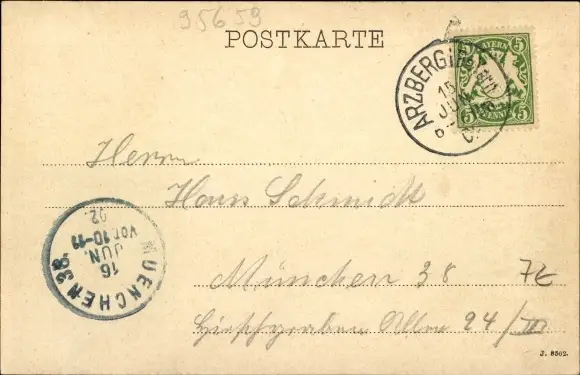 95659
POSTKARTE
BAYERN
5 5
5 5
PFENNIG
ARZBERG
15
JUN
Herrn
Hans Schmidt
München 38
7E
24/III
MUENCHEN 38.
16
JUN.
VOR.10-11
02.
J. 8562.